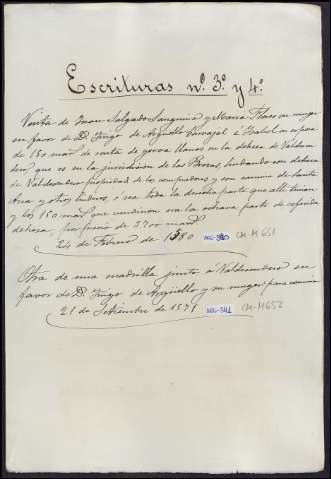 Escrituras nº 3º y 4º
Venta de Juan Salgado Sanguino y Maria Flores su muger
en favor de D. Diego de Argüello Carvajal é Isabel su esposa
de 150 mars de renta de yerva llanos en la dehesa de Valdesan-
dero, que es en la jurisdiccion de las Brozas, lindando con dehesa
de Valdesandero propiedad de los compradores y con camino de Santa
Ana y otros linderos, ó sea toda la derecha parte que alli tenian
y los 150 mars que vendieron era la octava parte de referida
dehesa, por precio de 37
24 de Febrero de 1580 CM-M651
Otra de una madrilla junto á Valdesandero en
favor de D. Diego de Argüello y su muger para
21 de Setiembre de 1571 CM-M652